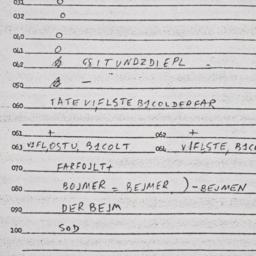 031 0
032 0
040 0
041 0
042 GSITUNDZDIEPL -
050 -
060 TATE VIFLSTE BICOLDFDFAR
061 + 062 +
063 VIFLOSTU, BICOLT 064 VIFLSTE, BICO
070 FARFOJLT+
080 BOJMER = BEJMER ) - BEJMEN
090 DER BEJM
200 SOD